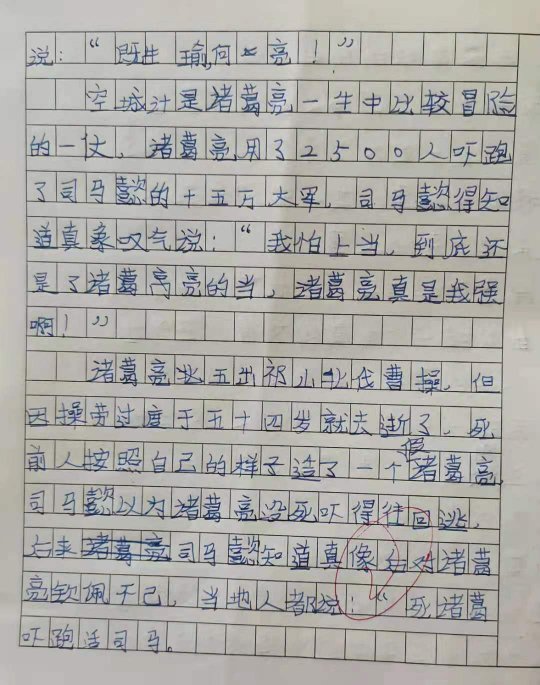 说：“既生瑜何亮！”
空城计是诸葛亮一生中比较冒险
的一仗，诸葛亮用了2500人吓跑
了司马懿的十五万大军，司马懿得知
道真象叹气说：“我怕上当，到底还
是了诸葛亮的当，诸葛亮真是我强
啊！”
诸葛亮北五出祁山北伐曹操，但
因操劳过度于五十四岁就去逝了，死
前人按照自己的样子造了一个假诸葛亮，
司马懿以为诸葛亮没死吓得往回逃，
后来诸葛亮司马懿知道真像后对诸葛
亮钦佩不已，当地人都说：“死诸葛
吓跑活司马。